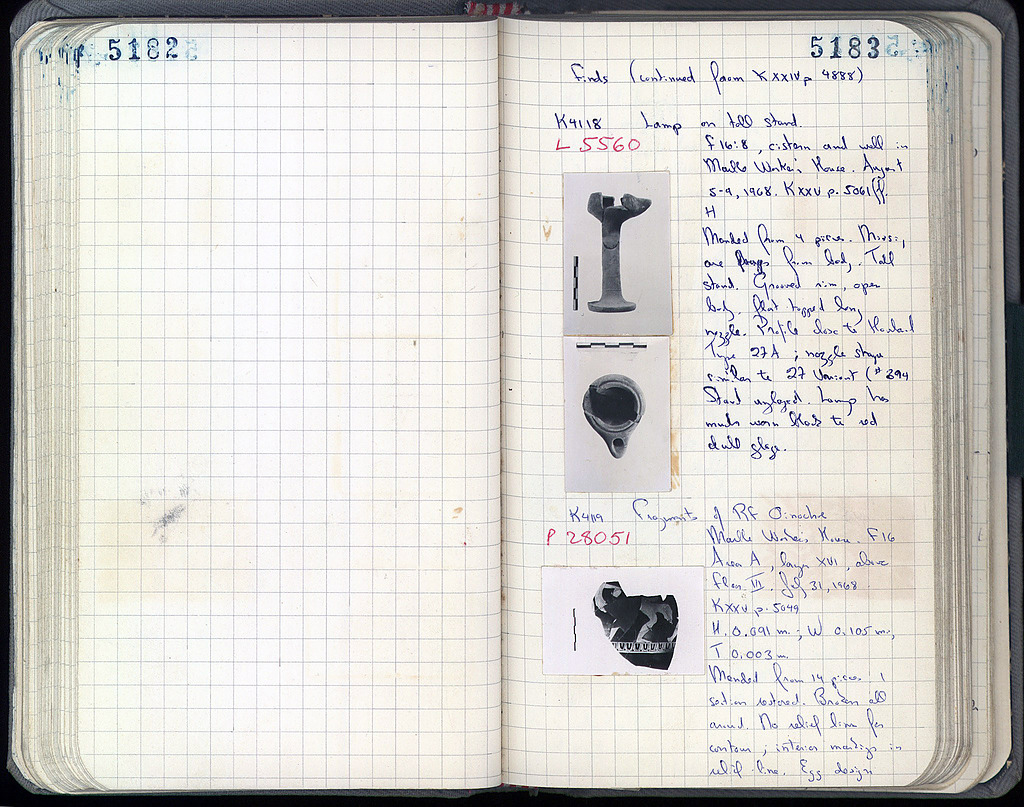 5182
5183
Finds (continued from K XXIV p 4888)
K4118 Lamp on tall stand.
L 5560
F 16:8, cistern and well in
Marble Worker's House. August
5-9, 1968. K XXV p. 5061 ff.
H
Mended from 4 pieces. Missing
are from body. Tall
stand. Grooved rim, open
body. flat topped long
nozzle. Profile close to Howland
Type 27A ; nozzle shape
similar to 27 Variant (# 394
Stand unglazed. Lamp has
much worn black to red
dull glaze.
K4119 Fragments of Rf Oinochoe
P 28051
Marble Worker's House. F16
Area A, layer XVI, above
floor VI. July 31, 1968
K XXV p. 5049
H. 0.091 m.; W 0.105 m.;
T 0.003 m
Mended from 14 pieces 1
section restored. Broken all
around. No relief line for
contour ; interior markings in
relief line. Egg design